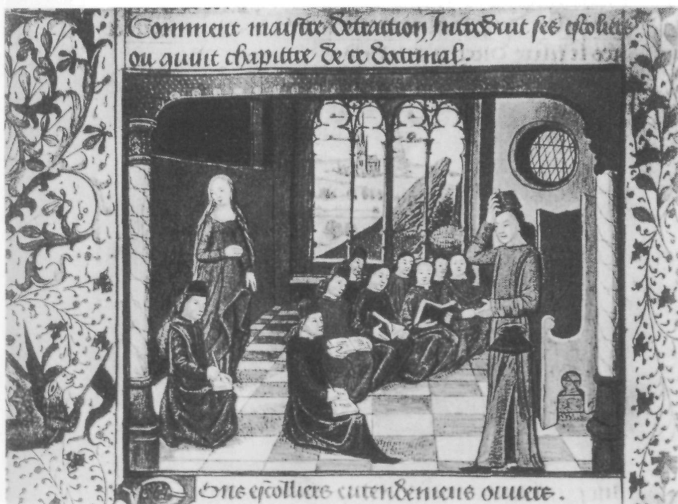 Comment maistre detraction Introduit ses escoliers
ou quint chapittre de ce doctrinal.
Ons escolliers entendemens ouvers.